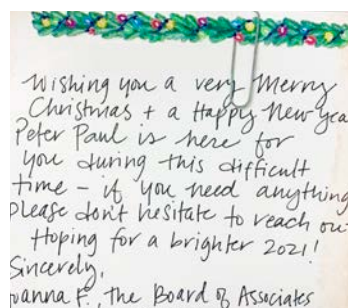 Wishing you a very Merry
Christmas + a Happy New Yea
Peter Paul is here for
you during this difficult
time - if you need anything
please don't hesitate to reach ou
Hoping for a brighter 2021!
Sincerely,
oanna F., the Board of Associates